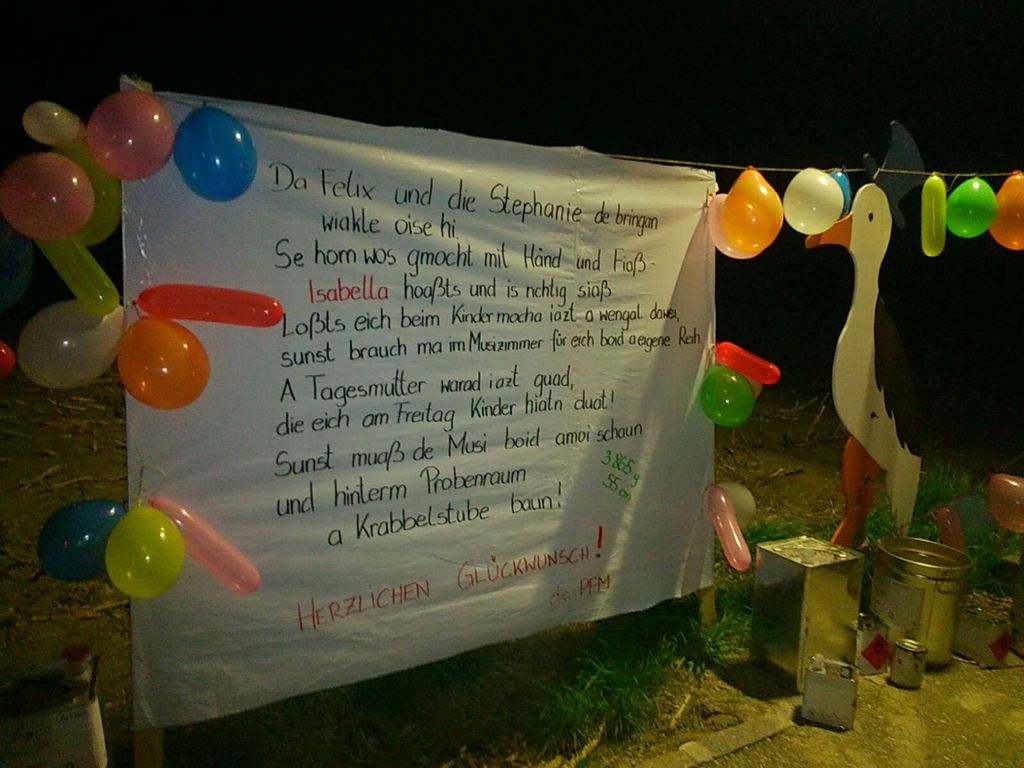 Da Felix und die Stephanie de bringan
wiakle oise hi,
Se hom wos gmocht mit Händ und Fiaß-
Isabella hoaßts und is richtig siaß
Loßts eich beim Kindermocha iazt a wengal dawei,
sunst brauch ma im Musizimmer für eich boid a eigene Reih
A Tagesmutter warad iazt guad,
die eich am Freitag Kinder hiatn duat!
Sunst muaß de Musi boid amoi schaun
3865g
55cm
und hinterm Probenraum
a Krabbelstube baun!
HERZLICHEN GLÜCKWUNSCH!
de PFM